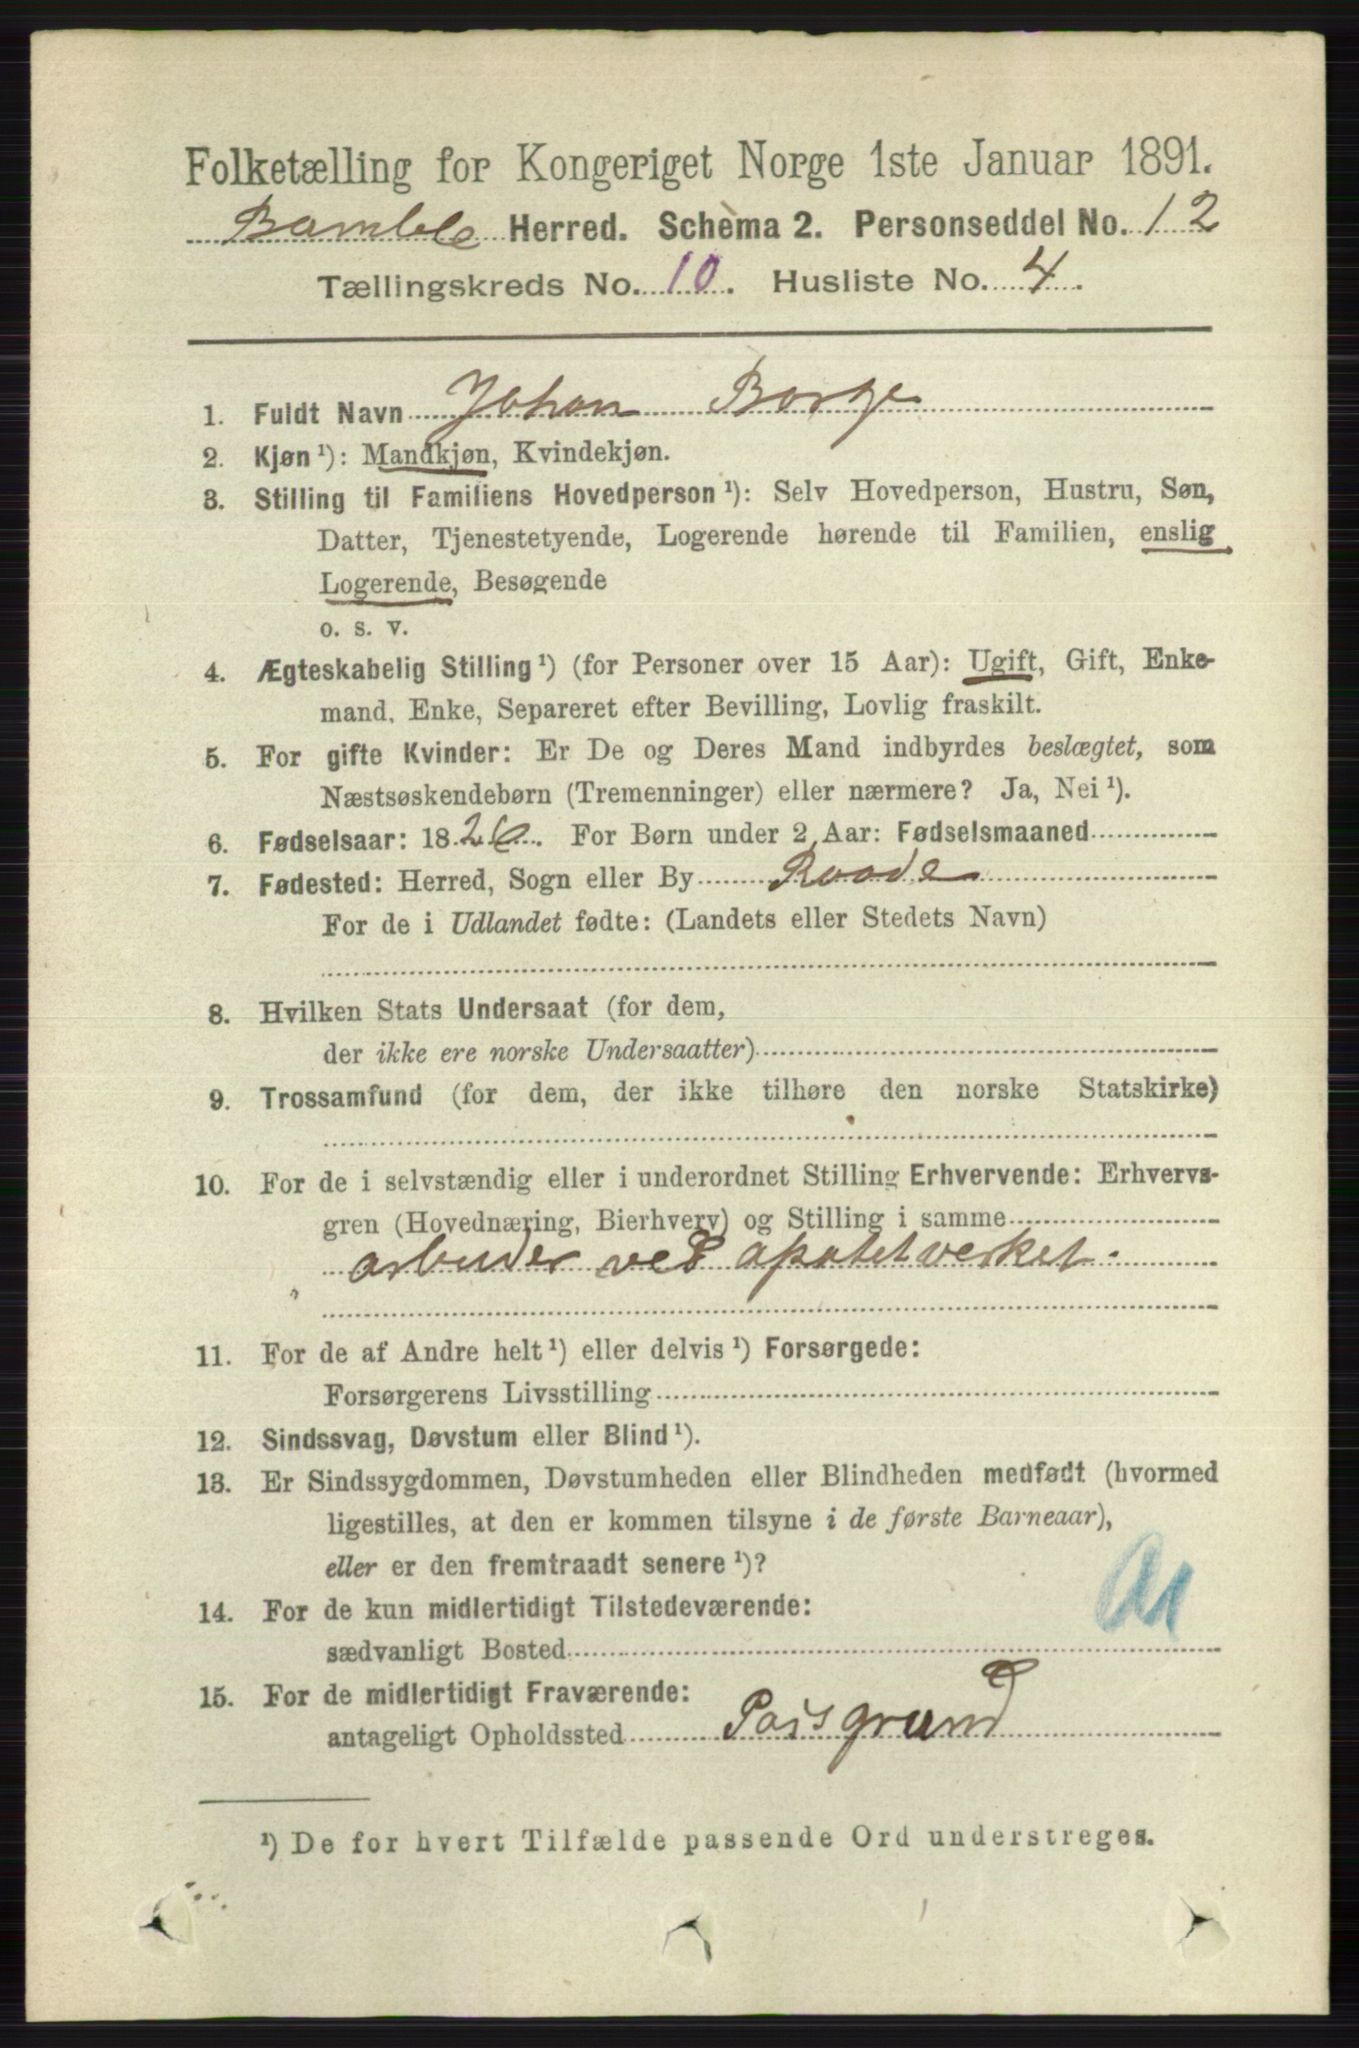 Folketælling for Kongeriget Norge 1ste Januar 1891.
Bamble Herred. Schema 2. Personseddel No. 12
Tællingskreds No. 10. Husliste No. 4.
1. Fuldt Navn Johan Borge
2. Kjøn ¹): Mandkjøn, Kvindekjøn.
3. Stilling til Familiens Hovedperson ¹): Selv Hovedperson, Hustru, Søn,
Datter, Tjenestetyende, Logerende hørende til Familien, enslig
Logerende, Besøgende
o. s. v.
4. Ægteskabelig Stilling ¹) (for Personer over 15 Aar): Ugift, Gift, Enke-
mand, Enke, Separeret efter Bevilling, Lovlig fraskilt.
5. For gifte Kvinder: Er De og Deres Mand indbyrdes beslægtet, som
Næstsøskendebørn (Tremenninger) eller nærmere? Ja, Nei ¹).
6. Fødselsaar: 1826. For Børn under 2 Aar: Fødselsmaaned
7. Fødested: Herred, Sogn eller By Raade
For de i Udlandet fødte: (Landets eller Stedets Navn)
8. Hvilken Stats Undersaat (for dem,
der ikke ere norske Undersaatter)
9. Trossamfund (for dem, der ikke tilhøre den norske Statskirke)
10. For de i selvstændig eller i underordnet Stilling Erhvervende: Erhvervs-
gren (Hovednæring, Bierhverv) og Stilling i samme
arbeider ved apatetverket.
11. For de af Andre helt ¹) eller delvis ¹) Forsørgede:
Forsørgerens Livsstilling
12. Sindssvag, Døvstum eller Blind ¹).
13. Er Sindssygdommen, Døvstumheden eller Blindheden medfødt (hvormed
ligestilles, at den er kommen tilsyne i de første Barneaar),
eller er den fremtraadt senere ¹)?
14. For de kun midlertidigt Tilstedeværende:
sædvanligt Bosted
15. For de midlertidigt Fraværende:
antageligt Opholdssted Porsgrund
¹) De for hvert Tilfælde passende Ord understreges.